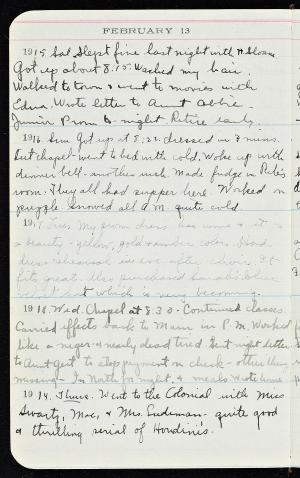 FEBRUARY 13
1915 Sat. Slept fine last night with H. Sloan
Got up about 8:15. Washed my hair.
Walked to town & went to movies with
Edna. Wrote letter to Aunt Abbie.
Junior Prom to-night. Retire early.
1916 Sun Got up at 8:22. dressed in 8 mins.
Cut chapel - went to bed with cold. Woke up with
dinner bell - another rush. Made fudge in
room. They all had supper here. Worked on
puzzle. Snowed all A.M. quite cold
191 Tues. My prom dress has come & it is
a beauty - yellow, gold color. Had
dress rehearsal in eve after choir. It
fits great. Also purchased blue
hat which is very becoming.
1918. Wed. Chapel at 8:30 - Continued classes.
Carried effects back to Main in P.M. Worked
like a niger & nearly dead tired. Got night letter
to Aunt Gert to stop payment on check -
missing - In North for night & meals. Wrote home
1919. Thurs. Went to the Colonial with Miss
Swartz, Mac, & Mrs. quite good
& thrilling serial of Houdini's.